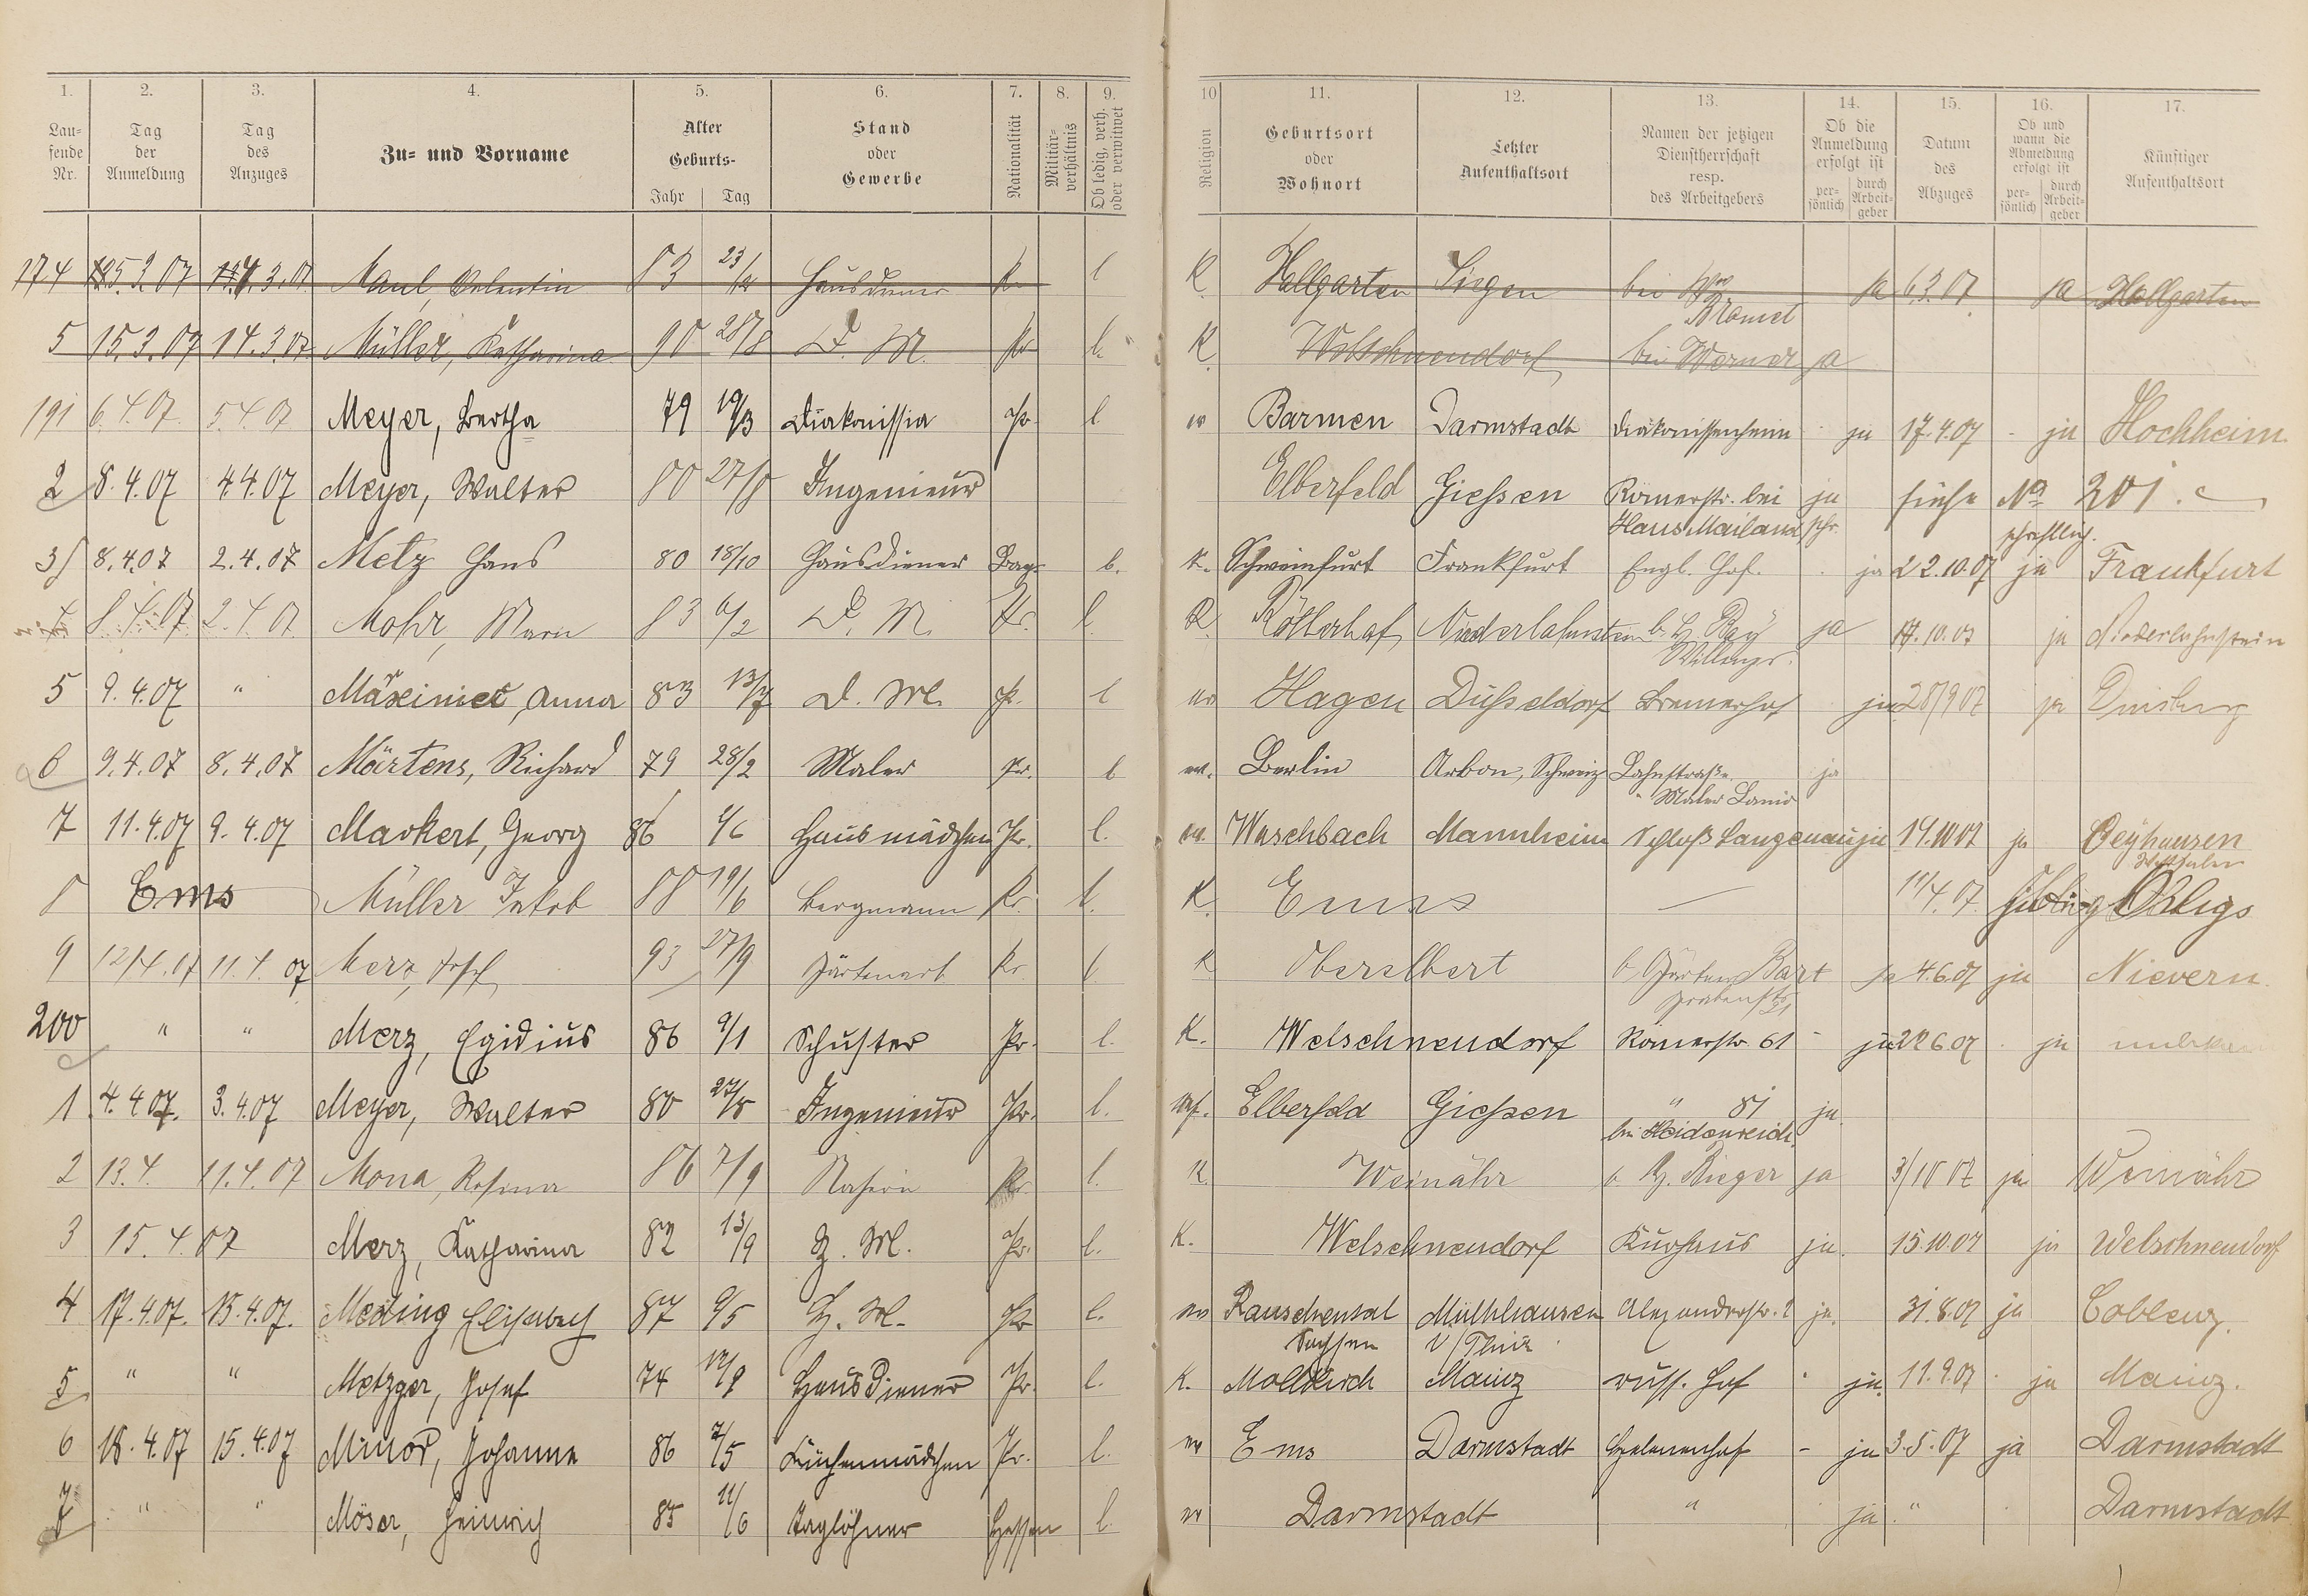 1. 2. 3. 4. 5. 6. 7. 8. 9. 10 11. 12. 13. 14. 15. 16. 17.
Lau-fende Nr. Tag der Anmeldung Tag des Anzuges Zu- und Vorname Alter Geburts- Jahr Tag Stand oder Gewerbe Nationalität Militär-verhältnis Ob ledig, verh. oder verwitwet Religion Geburtsort oder Wohnort Letzter Aufenthaltsort Namen der jetzigen Dienstherrschaft resp. des Arbeitgebers Ob die Anmeldung erfolgt ist per-sönlich durch Arbeit-geber Datum des Abzuges Ob und wann die Abmeldung erfolgt ist per-sönlich durch Arbeit-geber Künftiger Aufenthaltsort
174 5.3.07 4.3.07 Maul, Valentin 83 23/12 Hausdiener Pr l K Hallgarten Siegen bei Ww Bramel ja 6.3.07 ja Hallgarten
5 15.3.07 14.3.07 Müller, Katharina 90 28/8 D. M. Pr l. K. Welschneudorf bei Werner ja
191 6.4.07 5.4.07 Meyer, Bertha 79 19/3 Diakonissin Pr. l. ev Barmen Darmstadt Diakonissenheim ja 17.4.07 ja Hochheim
2 8.4.07 4.4.07 Meyer, Walter 80 27/8 Ingenieur Elberfeld Giessen Römerstr. bei ja siehe No 201.
Haus Mailand schr. schriftlich.
3 8.4.07 2.4.07 Metz Hans 80 18/10 Hausdiener Bay. l. K. Schweinfurt Frankfurt Engl. Hof. ja 22.10.07 ja Frankfurt
4 8.4.07 2.4.07 Mohr, Maria 83 6/2 D. M. Pr. l. K. Niederlahnstein ja 17.10.07 ja Niederlahnstein
5 9.4.07 " Anna 83 13/7 D. M. Pr. l ev Hagen Düsseldorf Bremerhof ja 28/9 07 ja Duisburg
6 9.4.07 8.4.07 Märtens, Richard 79 28/2 Maler Pr. l ev. Berlin Arbon, Schweiz Lahnstraße ja
7 11.4.07 9.4.07 Markert, Georg 86 /6 Hausmädchen Pr. l. ev. Waschbach Mannheim Schloß Langenau ja 14.10.07 ja Oeyhausen
Westfalen
8 Ems Müller Jakob 88 19/6 Bergmann Pr. l. K. Ems — 11/4.07
9 12/4.07 11.4.07 Merz, 93 27/9 Gärtnerarb. Pr. l. K Oberelbert b. Gärtner Bart ja 4.6.07 ja Nievern
Grabenstr. 21
200 " " Merz, Egidius 86 9/1 Schuster Pr. l. K. Welschneudorf Römerstr. 61 ja 22.6.07 ja
1 4.4.07. 3.4.07 Meyer, Walter 80 27/8 Ingenieur Pr. l. Elberfeld Giessen " 81 ja
bei Heidenreich.
2 13.4. 11.4.07 Mona, Rosina 86 7/9 Näherin Pr. l. K. Weinähr b. H. Rieger ja 3/10 07 ja Weinähr
3 15.4.07 Merz, Katharina 82 13/9 Z. M. Pr. l. K. Welschneudorf Kurhaus ja. 15.10.07 ja Welschneudorf
4 17.4.07. 15.4.07. Meding Elisabeth 87 9/5 Z. M. Pr l. ev Mühlhausen Alexanderstr. 2 ja. 31.8.07 ja Coblenz.
Sachsen i/Thür.
5 " " Metzger, Josef 74 12/9 Hausdiener Pr. l. K. Mollkirch Mainz russ. Hof ja. 11.9.07 ja Mainz.
6 18.4.07 15.4.07 Minor, Johanna 86 7/5 Küchenmädchen Pr. l. ev Ems Darmstadt Helenenhof - ja 3.5.07 ja Darmstadt
7 " " Möser, Heinrich 85 11/6 Taglöhner Hessen l. ev Darmstadt " ja " Darmstadt